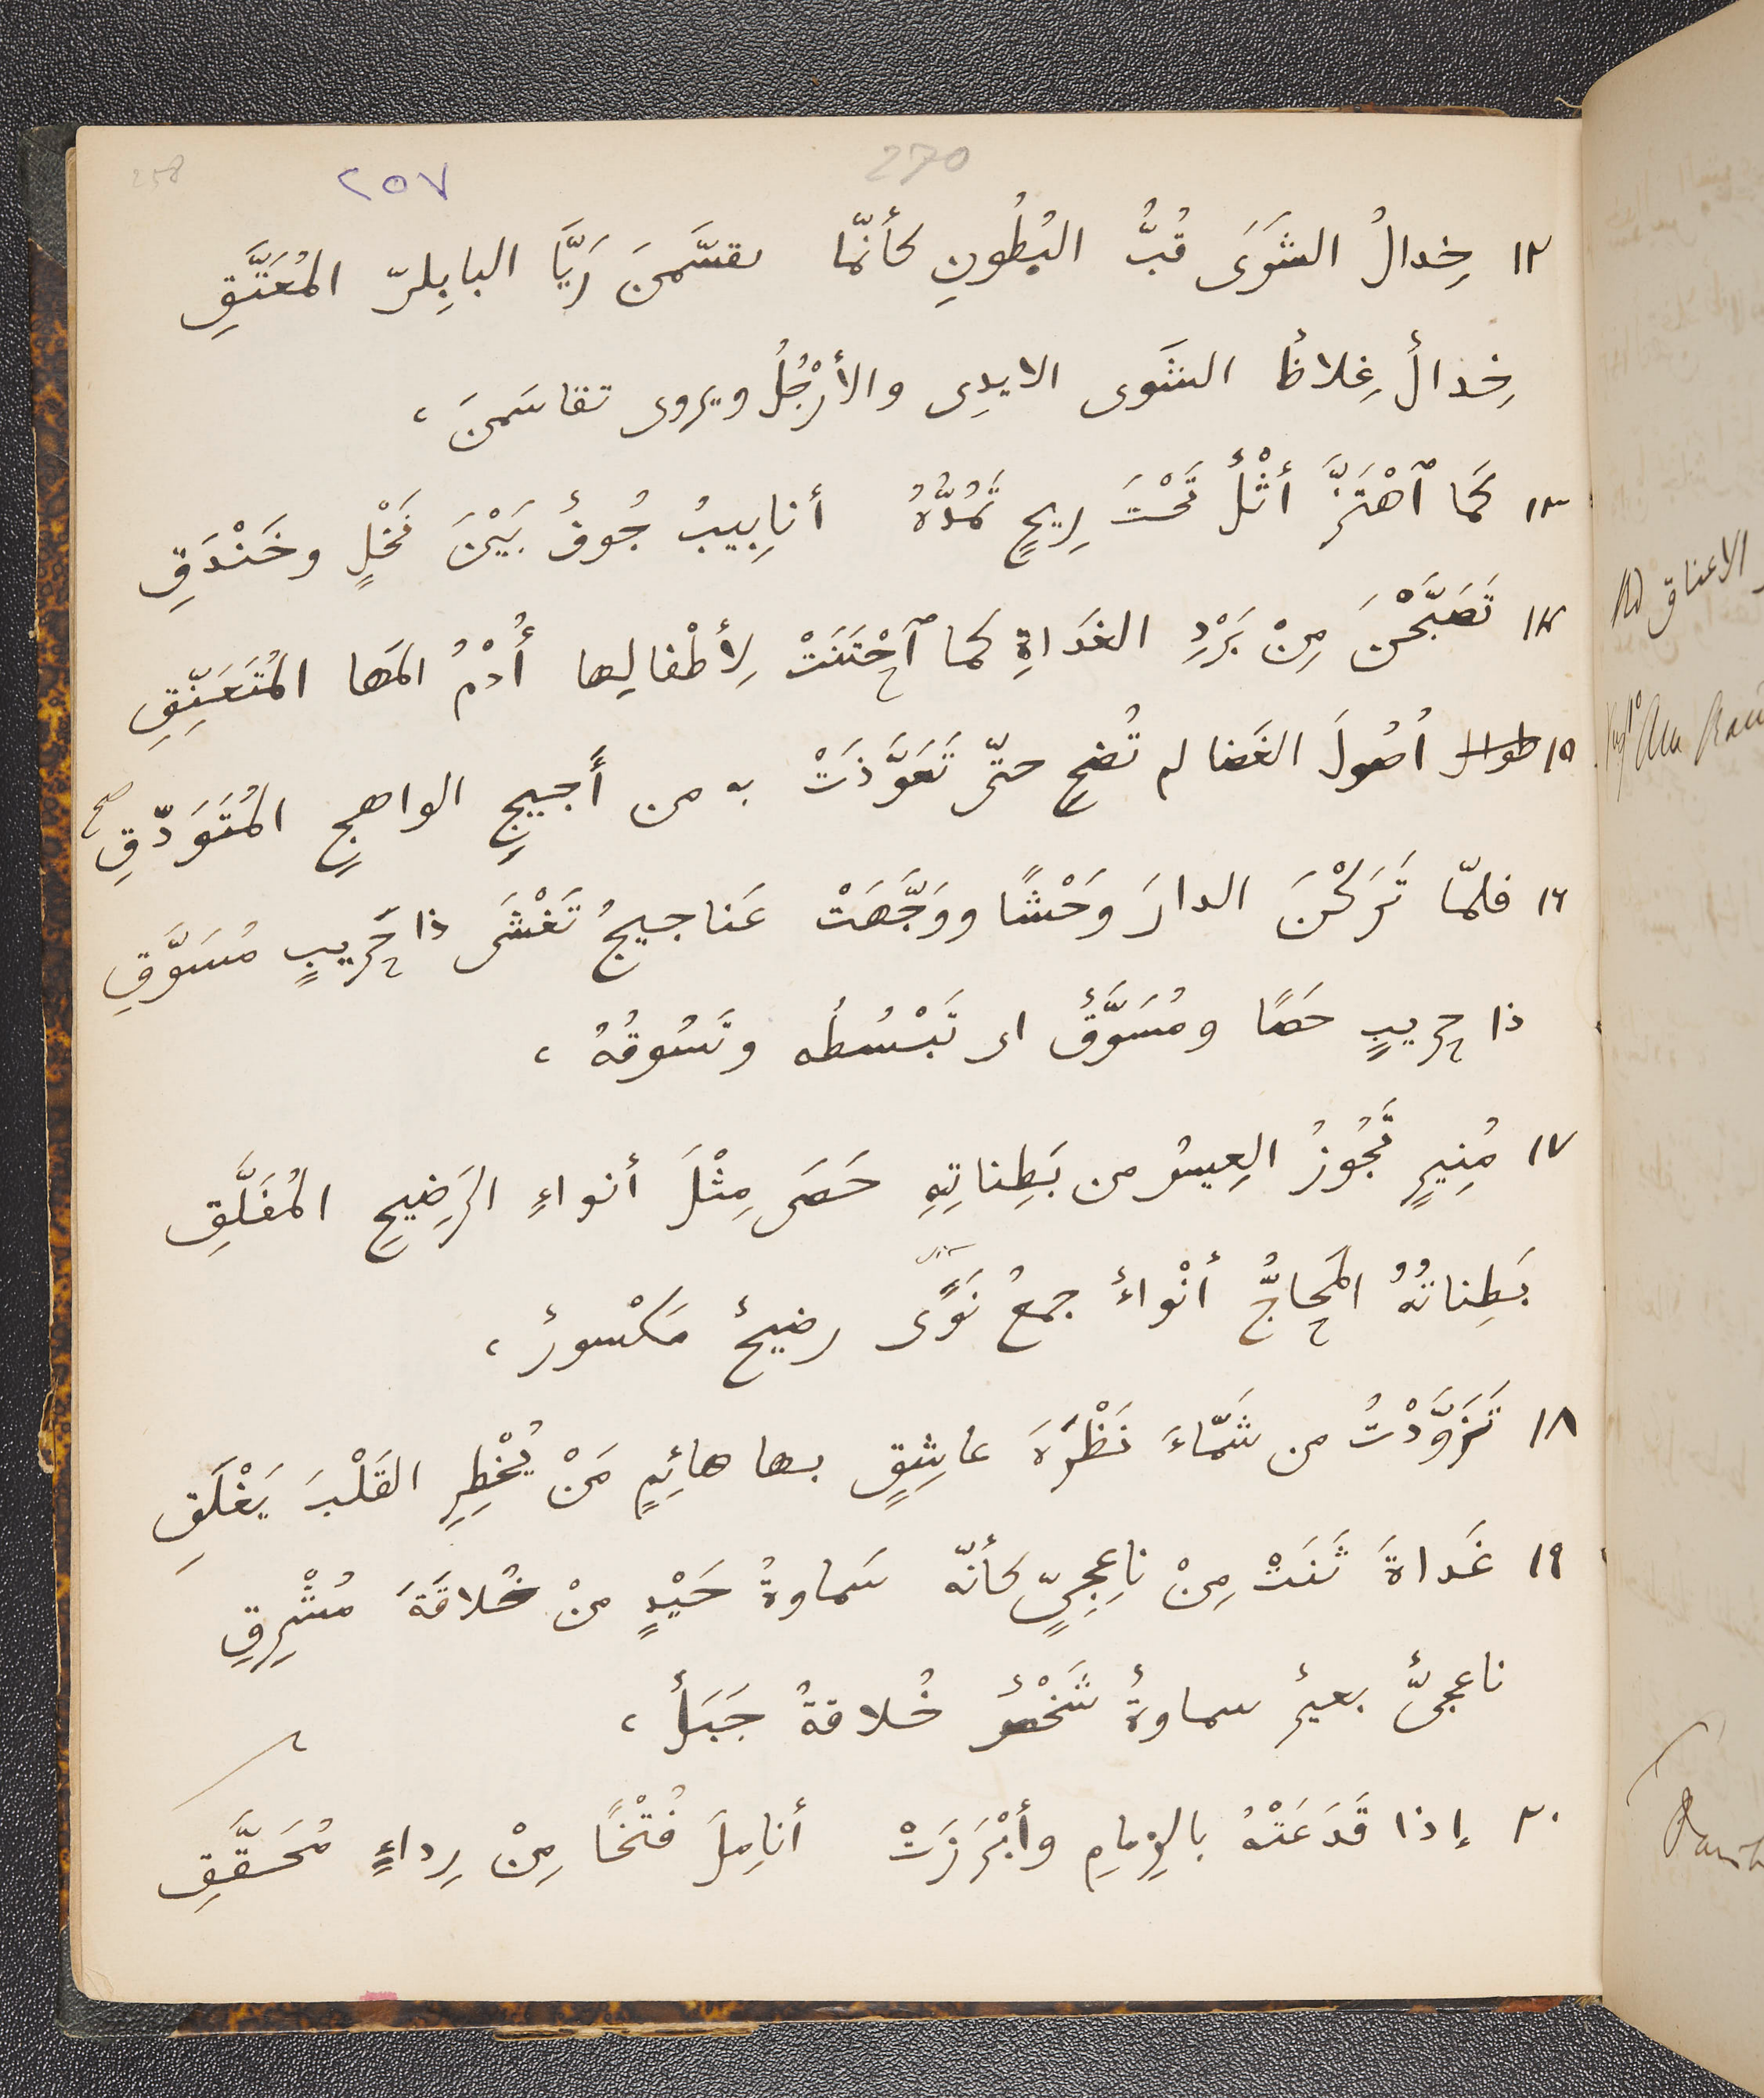 258 ٢٥٧ 270
١٢ خِدالُ الشَوَى قُبُّ البُطُونِ كأنّما تقسَّمنَ رَيَّا البابِلىّ المُعَتَّقِ
خِدالٌ غِلاظٌ الشَوى الايدِى والأرْجُلُ ويروى تقاسَمنَ،
١٣ كَما ٱهْتَزَّ أثْلٌ تَحْتَ رِيحٍ تَمُدُّهُ أنابِيبُ جُوفٌ بَيْنَ نَخْلٍ وخَنْدَقِ
١٤ تَصَبَّحْنَ مِنْ بَرْدِ الغَداةِ كما ٱحْتَنَتْ لِأطْفالِها أُدْمُ المَها المُتَعَنِّقِ
١٥ أصُولَ الغَضا لم تُضحِ حتّى تَعَوَّذَتْ به من أَجيجٍ الواهجِ المُتَوَدّقِ صح
١٦ فلمّا تَرَكْنَ الدارَ وَحْشًا ووَجَّهَتْ عَناجيجُ تَغْشَى ذا حَرِيبٍ مُسَوَّقِ
ذا حرِيبٍ حَصًا ومُسَوَّقٌ اى تَبْسُطُه وتَسُوقُهُ،
١٧ مُنِيرٍ تَجُوزُ العِيسُ من بَطِناتِهِ حَصَى مِثْلَ أنواءِ الرَضِيحِ المُفَلَّقِ
بَطِناتُهُ المَحاجُّ أنْواءٌ جمعُ نَوًى رضيحٌ مَكْسورٌ،
١٨ تَزَوَّدْتُ من شَمّاءَ نَظْرَةَ عاشِقٍ بها هائِمٍ مَنْ يُخْطِرِ القَلْبَ يَغْلَقِ
١٩ غَداةَ ثَنَتْ مِنْ ناعِجِىٍّ كأنّه سَماوةُ حَيْدٍ منْ خُلاقَةَ مُشْرِقِ
ناعجىٌّ بعيرٌ سماوةٌ شَخْصٌ خُلاقةُ جَبَلٌ،
٢٠ إذا قَدَعَتْهُ بالزِمامِ وأبْرَزَتْ أنامِلَ فُتْخًا مِنْ رِداءٍ مُحَقَّقِ
الاعناق